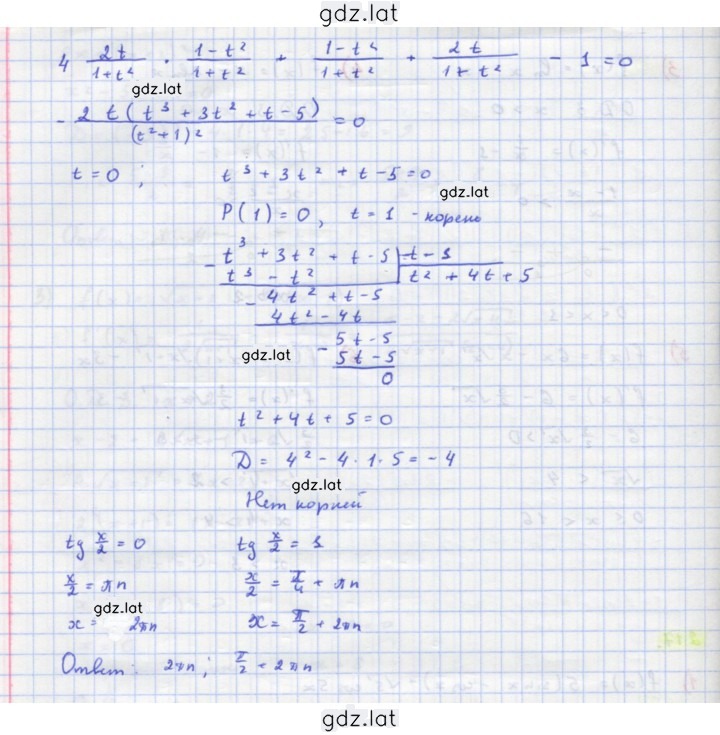 gdz.lat
4 2t/(1+t²) · (1-t²)/(1+t²) + (1-t²)/(1+t²) + 2t/(1+t²) - 1 = 0
gdz.lat
- 2t(t³+3t²+t-5)/(t²+1)² = 0
t = 0 ; t³ + 3t² + t - 5 = 0
gdz.lat
P(1) = 0, t = 1 - корень
- t³ + 3t² + t - 5 | t - 1
t³ - t² | t² + 4t + 5
- 4t² + t - 5
4t² - 4t
- 5t - 5
gdz.lat
5t - 5
0
t² + 4t + 5 = 0
D = 4² - 4 · 1 · 5 = -4
gdz.lat
Нет корней
tg x/2 = 0 tg x/2 = 1
x/2 = πn x/2 = π/4 + πn
gdz.lat
x = 2πn x = π/2 + 2πn
Ответ: 2πn; π/2 + 2πn
gdz.lat